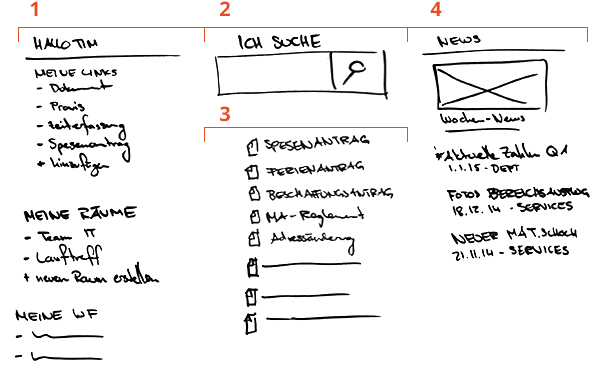 1
HALLO TIM
MEINE LINKS
- Dokument
- Praxis
- Zeiterfassung
- Spesenantrag
+ hinzufügen
MEINE RÄUME
- Team IT
- Lauftreff
+ neuen Raum erstellen
MEINE WF
2
ICH SUCHE
3
SPESENANTRAG
FERIENANTRAG
BESCHAFFUNGSANTRAG
MA-Reglement
Adressänderung
4
NEWS
Wochen-News
Aktuelle Zahlen Q1
1.1.15 - DEPT
FOTOS BEREICHSAUSFLUG
18.12.14 - SERVICES
NEUER MAT.SCHOCH
21.11.14 - SERVICES